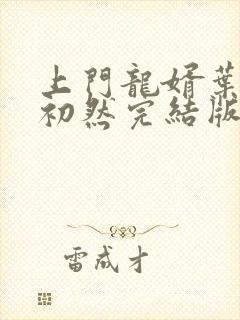 上門龍婿葉
初然完結版
雷成才